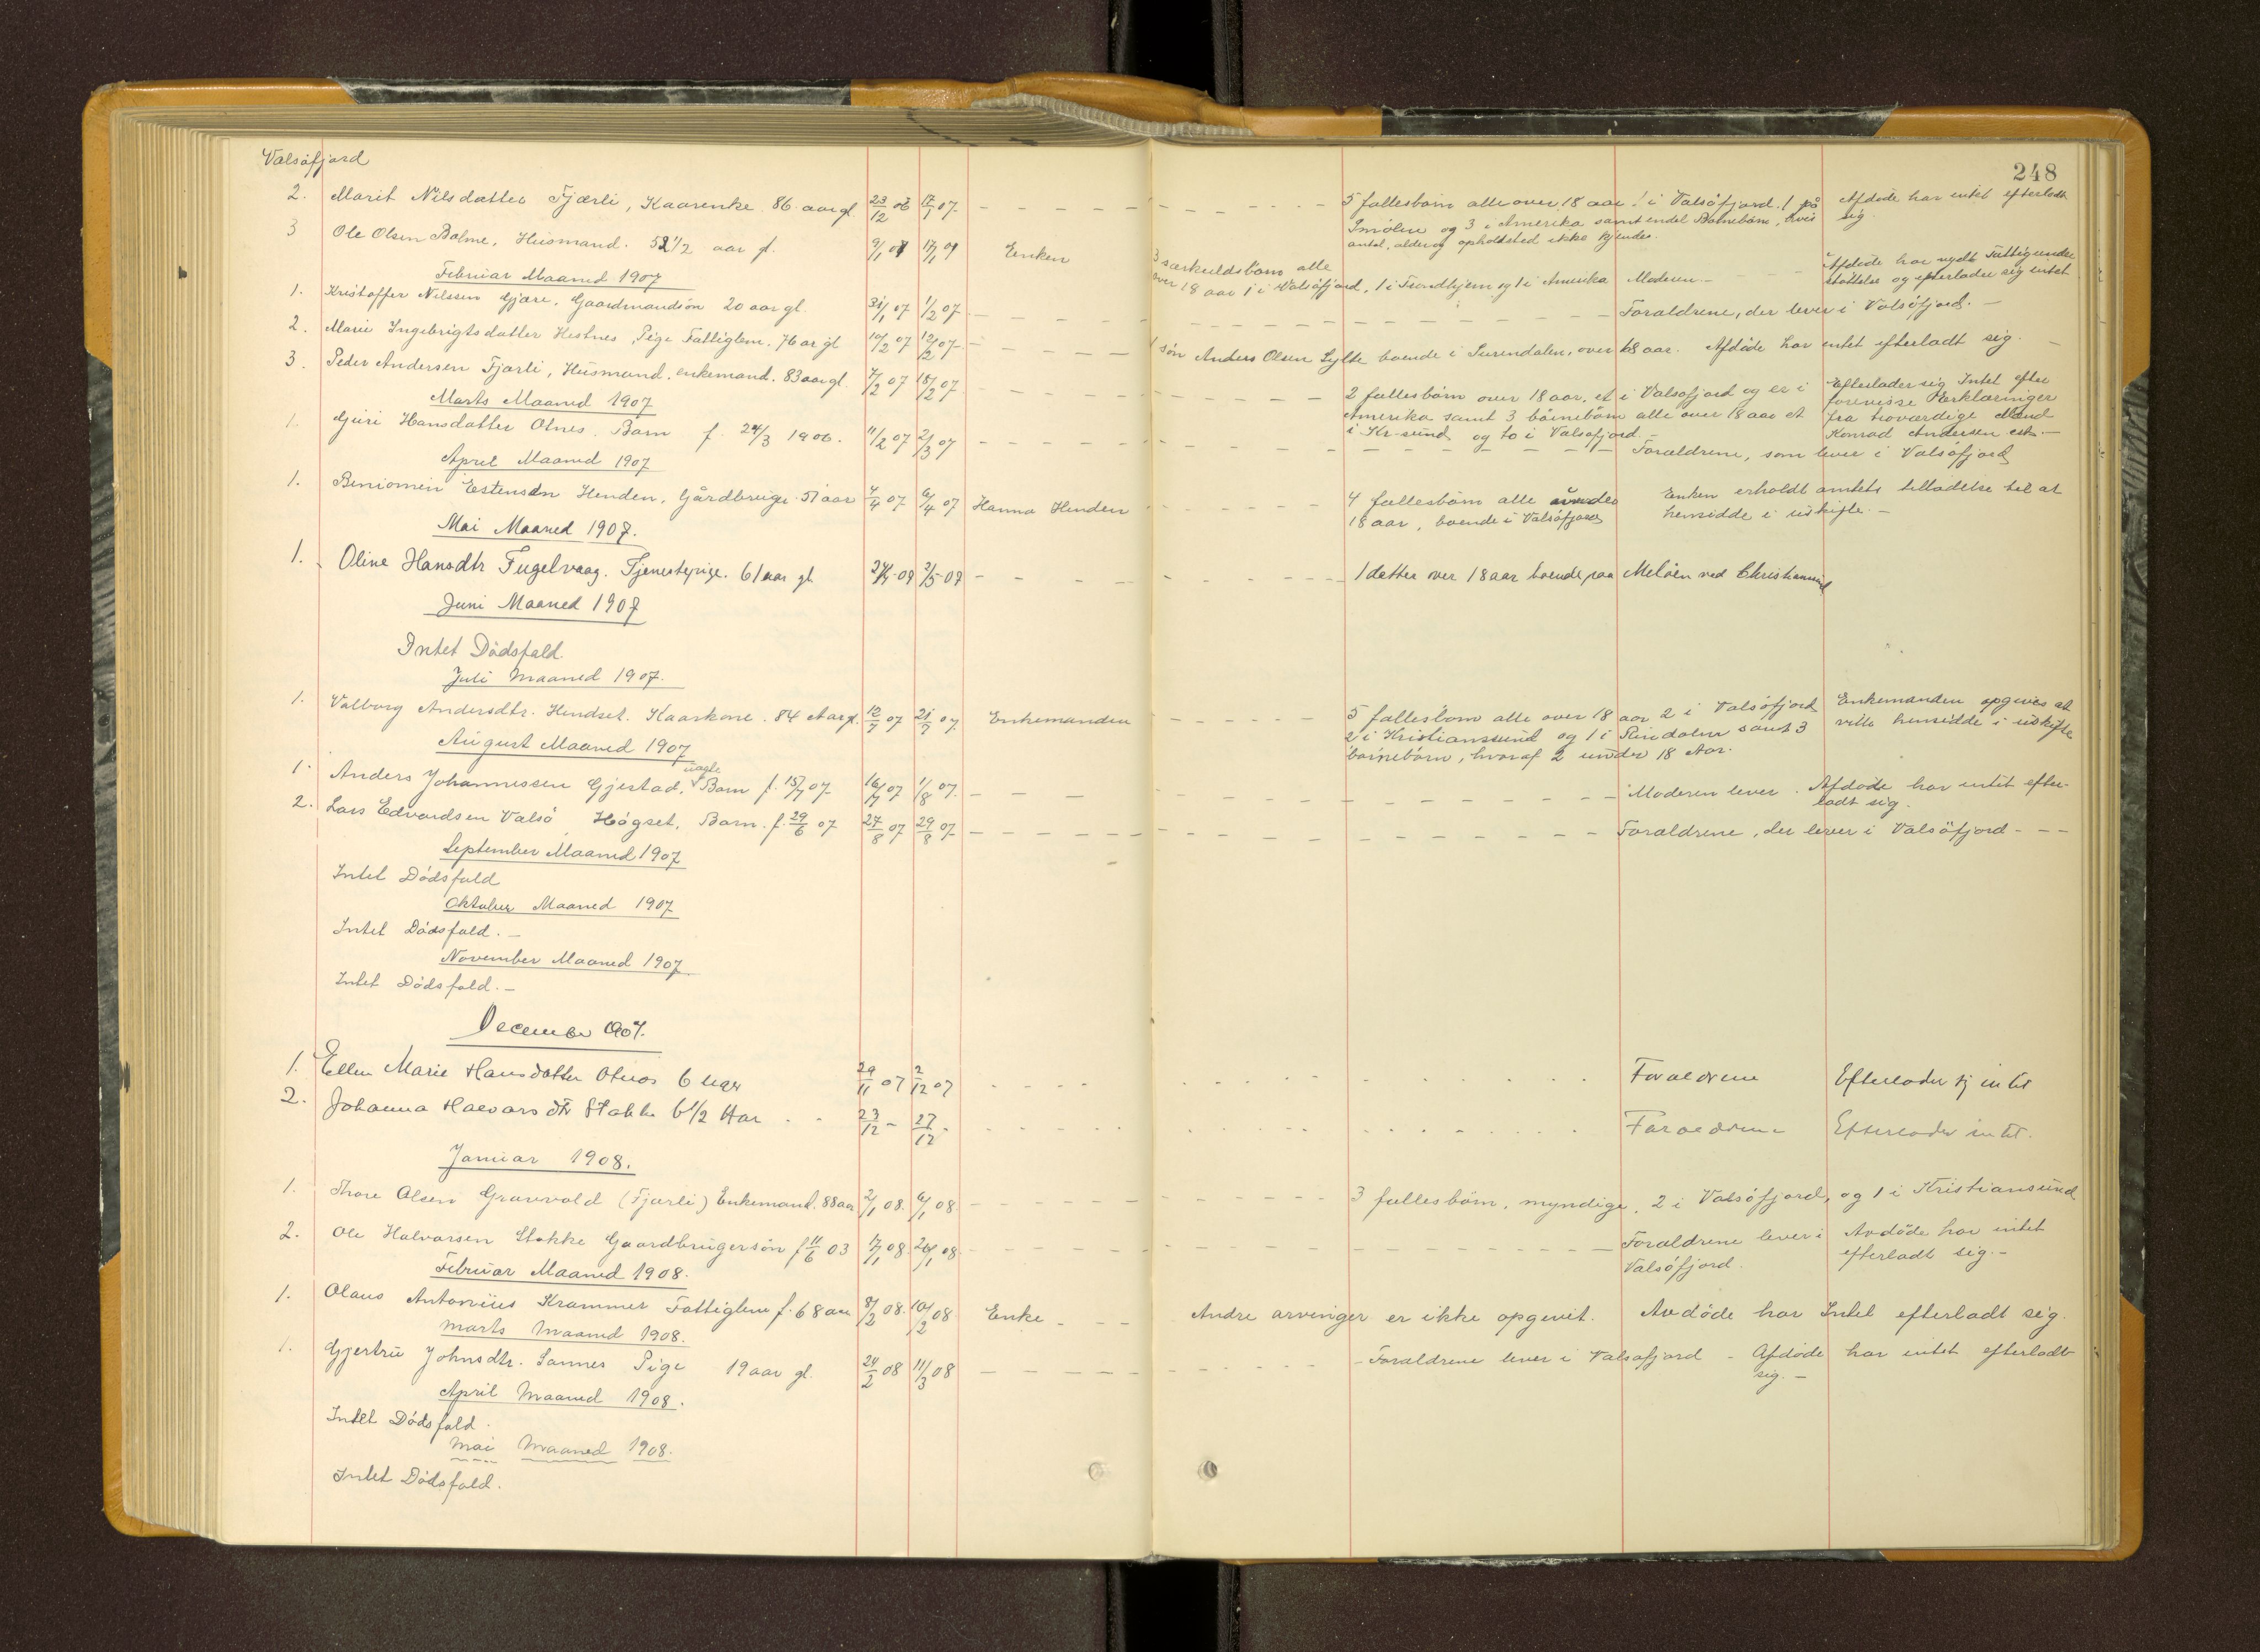 Valsøfjord
248
2. Marit Nilsdatter Fjærli, Kaarenke. 86 aar gl. 23/12 06 17/1 07. 5 fællesbørn alle over 18 aar 1 i Valsøfjord. 1 på Afdøde har intet efterladt
Smølen og 3 i Amerika samt endel Barnebørn, hvis sig.
antal, alder og opholdsted ikke kjendes.
3 Ole Olsen Bolme, Husmand. 52 1/2 aar gl. 9/1 07 17/1 07 Enken 3 særkuldsbørn alle
over 18 aar 1 i Valsøfjord, 1 i Trondhjem og 1 i Amerika Moderen. — Afdøde har nydt Fattigunder
støttelse og efterlader sig intet
Februar Maaned 1907
1. Kristoffer Nilssen Gjære, Gaardmandsøn 20 aar gl. 31/1 07 1/2 07 Forældrene, der lever i Valsøfjord. —
2. Marie Ingebrigtsdatter Hestnes, Pige Fattiglem. 76 ar gl 10/2 07 12/2 07 1 søn Anders Olsen Sylte boende i Surendalen, over 18 aar. Afdøde har intet efterladt sig. —
3. Peder Andersen Fjærli, Husmand, enkemand. 83 aar gl. 7/2 07 18/2 07 2 fællesbørn over 18 aar, et i Valsøfjord og er i Efterlader sig Intet efter
Amerika samt 3 børnebørn alle over 18 aar et forevisse Erklæringer
i Kr-sund og to i Valsøfjord. — fra troværdige Mænd
Konrad Andersen
Marts Maaned 1907
1. Guri Hansdatter Otnes. Barn f. 24/3 1906. 11/2 07 2/3 07 Forældrene, som lever i Valsøfjord
April Maaned 1907
1. Beniomin Estensen Henden, Gårdbruger 51 aar 4/4 07 6/4 07 Hanna Henden 4 fællesbørn alle under Enken erholdt amtets tilladelse til at
18 aar, boende i Valsøfjord hensidde i uskifte. —
Mai Maaned 1907.
1. Oline Hansdtr Fugelvaag. Tjenestepige. 61 aar gl. 24/4 07 2/5 07 1 datter over 18 aar boende paa Meløen ved Christiansund
Juni Maaned 1907
Intet Dødsfald.
Juli Maaned 1907.
1. Valborg Andersdtr. Hendset. Kaarkone. 84 Aar gl. 12/7 07 21/7 07 Enkemanden 5 fællesbørn alle over 18 aar 2 i Valsøfjord Enkemanden opgives at
2 i Kristiansund og 1 i Rindalen samt 3 ville hensidde i uskifte
børnebørn, hvoraf 2 under 18 Aar.
August Maaned 1907
1. Anders Johannessen Gjestad, uægte Barn f. 15/7 07 16/7 07 1/8 07. Moderen lever. Afdøde har intet efter-
ladt sig.
2. Lars Edvardsen Valsø Høgset, Barn. f. 29/6 07 27/8 07 29/8 07 Forældrene, der lever i Valsøfjord
September Maaned 1907
Intet Dødsfald
Oktober Maaned 1907
Intet Dødsfald. —
November Maaned 1907
Intet Dødsfald. —
December 1907.
1. Ellen Marie Hansdatter Otnes 6 uger 29/11 07 2/12 07 Forældrene Efterlader sig intet
2. Johanna Halvorsdtr Stokke 6 1/2 Aar 23/12 - 27/12 - Forældrene Efterlader intet.
Januar 1908.
1. Thore Olsen Grønvold (Fjærli) Enkemand. 88 aar 2/1 08. 6/1 08 3 fællesbørn, myndige. 2 i Valsøfjord, og 1 i Kristiansund
2. Ole Halvorsen Stokke Gaardbrugersøn f 11/6 03 17/1 08. 24/1 08. Forældrene lever i Avdøde har intet
Valsøfjord. efterladt sig. —
Februar Maaned 1908.
1. Olaus Antonius Krammer Fattiglem f. 68 aar 8/2 08. 10/2 08 Enke Andre arvinger er ikke opgevit. Avdøde har Intet efterladt sig.
Marts Maaned 1908.
1. Gjertru Johnsdtr. Sannes Pige 19 aar gl. 24/2 08 11/3 08 Forældrene lever i Valsøfjord - Afdøde har intet efterladt
sig. —
April Maaned 1908.
Intet Dødsfald.
Mai Maaned 1908.
Intet Dødsfald.